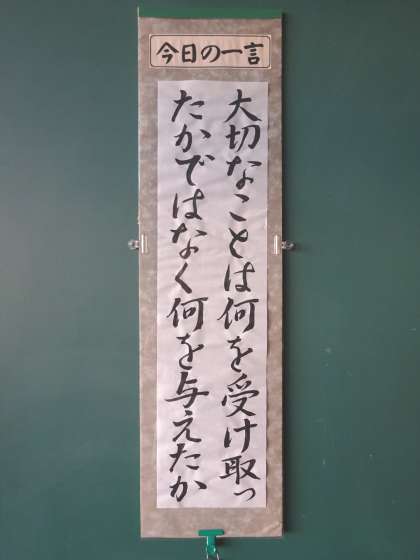 今日の一言
大切なことは何を受け取っ
たかではなく何を与えたか